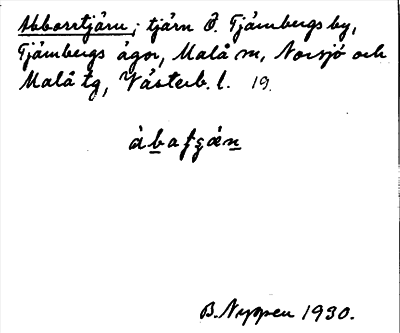 Abborrtjärn; tjärn Ö. Tjämbergs by,
Tjämbergs ägor, Malå sn, Norsjö och
Malå tg, Västerb. l. 19.
B. Nyppen 1930.